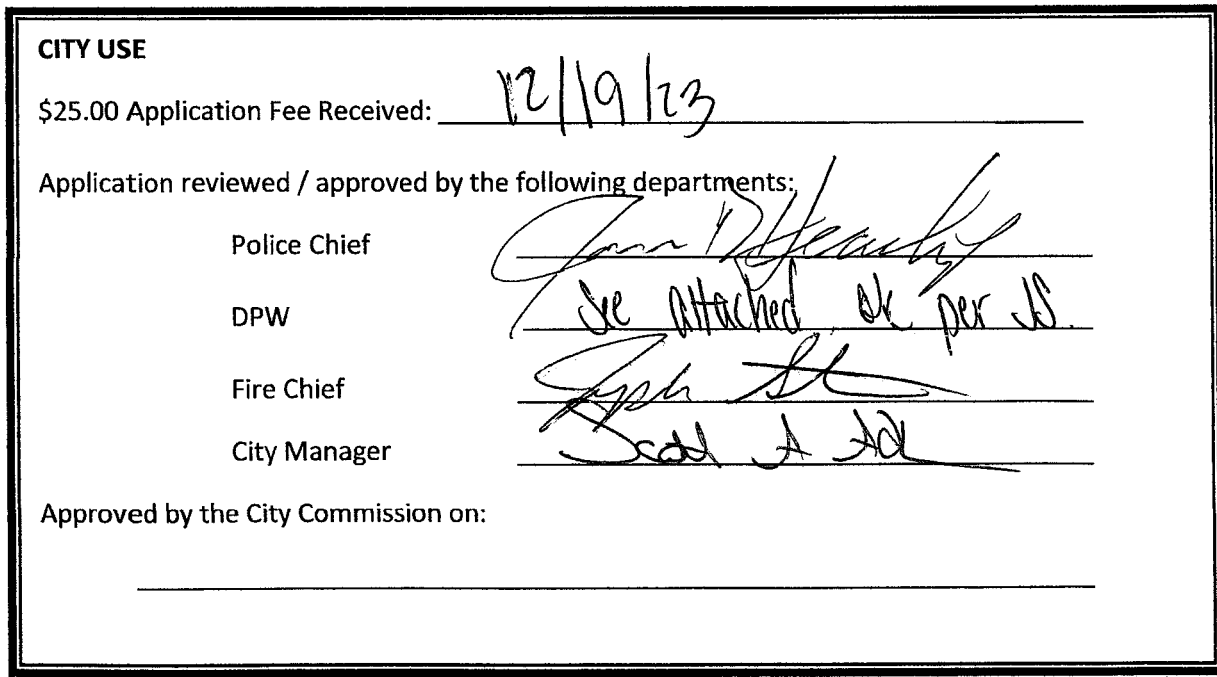 CITY USE
$25.00 Application Fee Received: 12/19/23
Application reviewed / approved by the following departments:
Police Chief
DPW see attached ok per JS.
Fire Chief
City Manager Scott A
Approved by the City Commission on: